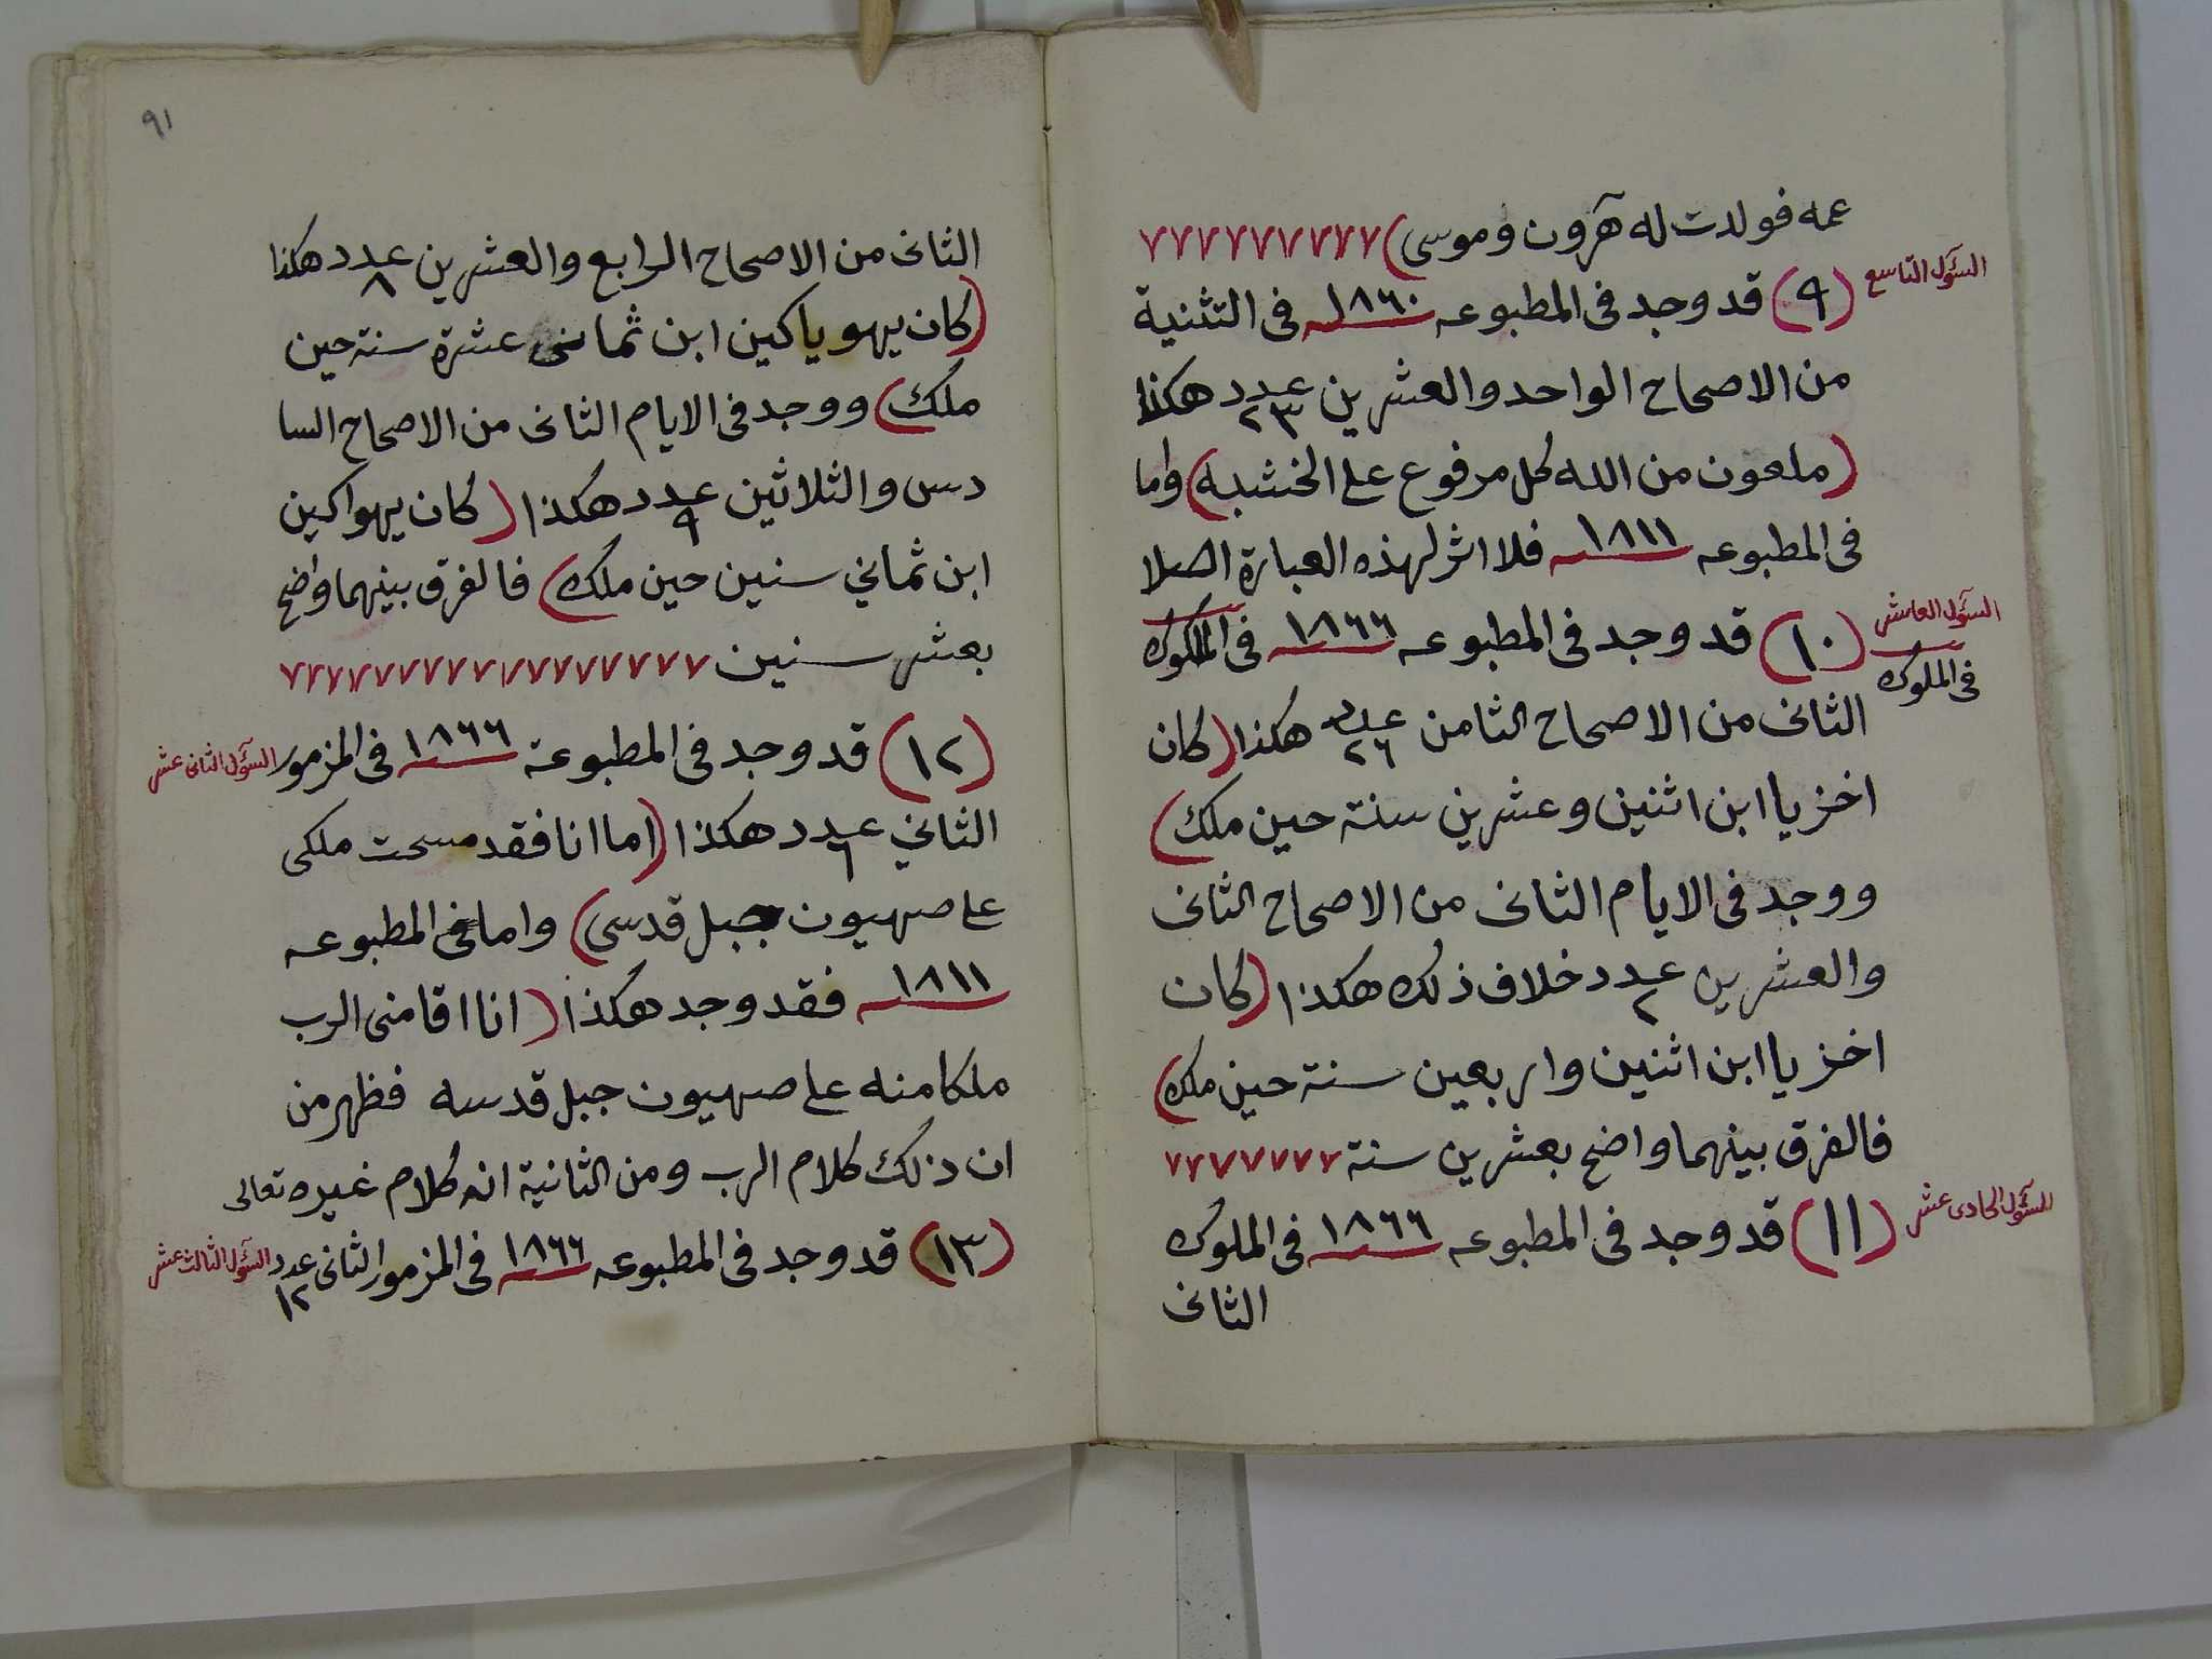 عمه فولدت له هٓرون وموسى) ٧٧٧٧٧٧٧٧٧
السؤل التاسع
(٩) قد وجد فى المطبوعه ١٨٦٠ فى التثنية
من الاصحاح الواحد والعشرين عدد ٢٣ هكذا
(ملعون من الله كل مرفوع على الخشبه) واما
فى المطبوعه ١٨١١ فلا اثر لهذه العبارة اصلا
السؤل العاشر
فى الملوك
(١٠) قد وجد فى المطبوعه ١٨٦٦ فى الملكوك
الثانى من الاصحاح الثامن عدد ٢٦ هكذا (كان
اخزيا ابن اثنين وعشرين سنة حين ملك)
ووجد فى الايام الثانى من الاصحاح الثانى
والعشرين عدد ٢ خلاف ذلك هكذا (كان
اخزيا ابن اثنين واربعين سنة حين ملك)
فالفرق بينهما واضح بعشرين سنة ٧٧٧٧٧٧٧
السؤل الحادى عشر
(١١) قد وجد فى المطبوعه ١٨٦٦ فى الملوك
الثانى
٩١
الثانى من الاصحاح الرابع والعشرين عدد ٨ هكذا
(كان يهوياكين ابن ثمانى عشرة سنة حين
ملك) ووجد فى الايام الثانى من الاصحاح السا
دس والثلاثين عدد ٩ هكذا (كان يهواكين
ابن ثماني سنين حين ملك) فالفرق بينهما واضح
بعشر سنين ٧٧٧٧٧٧٧٧٧٧٧٧٧٧٧٧
(١٢) قد وجد فى المطبوعة ١٨٦٦ فى المزمور
السؤل الثانى عشر
الثاني عدد ٦ هكذا (اما انا فقد مسحت ملكى
على صهيون جبل قدسى) واما فى المطبوعه
١٨١١ فقد وجد هكذا (انا اقامنى الرب
ملكا منه على صهيون جبل قدسه فظهر من
ان ذلك كلام الرب ومن الثانية انه كلام غيره تعالى
(١٣) قد وجد فى المطبوعه ١٨٦٦ فى المزمور الثانى عدد ١٢
السؤل الثالث عشر